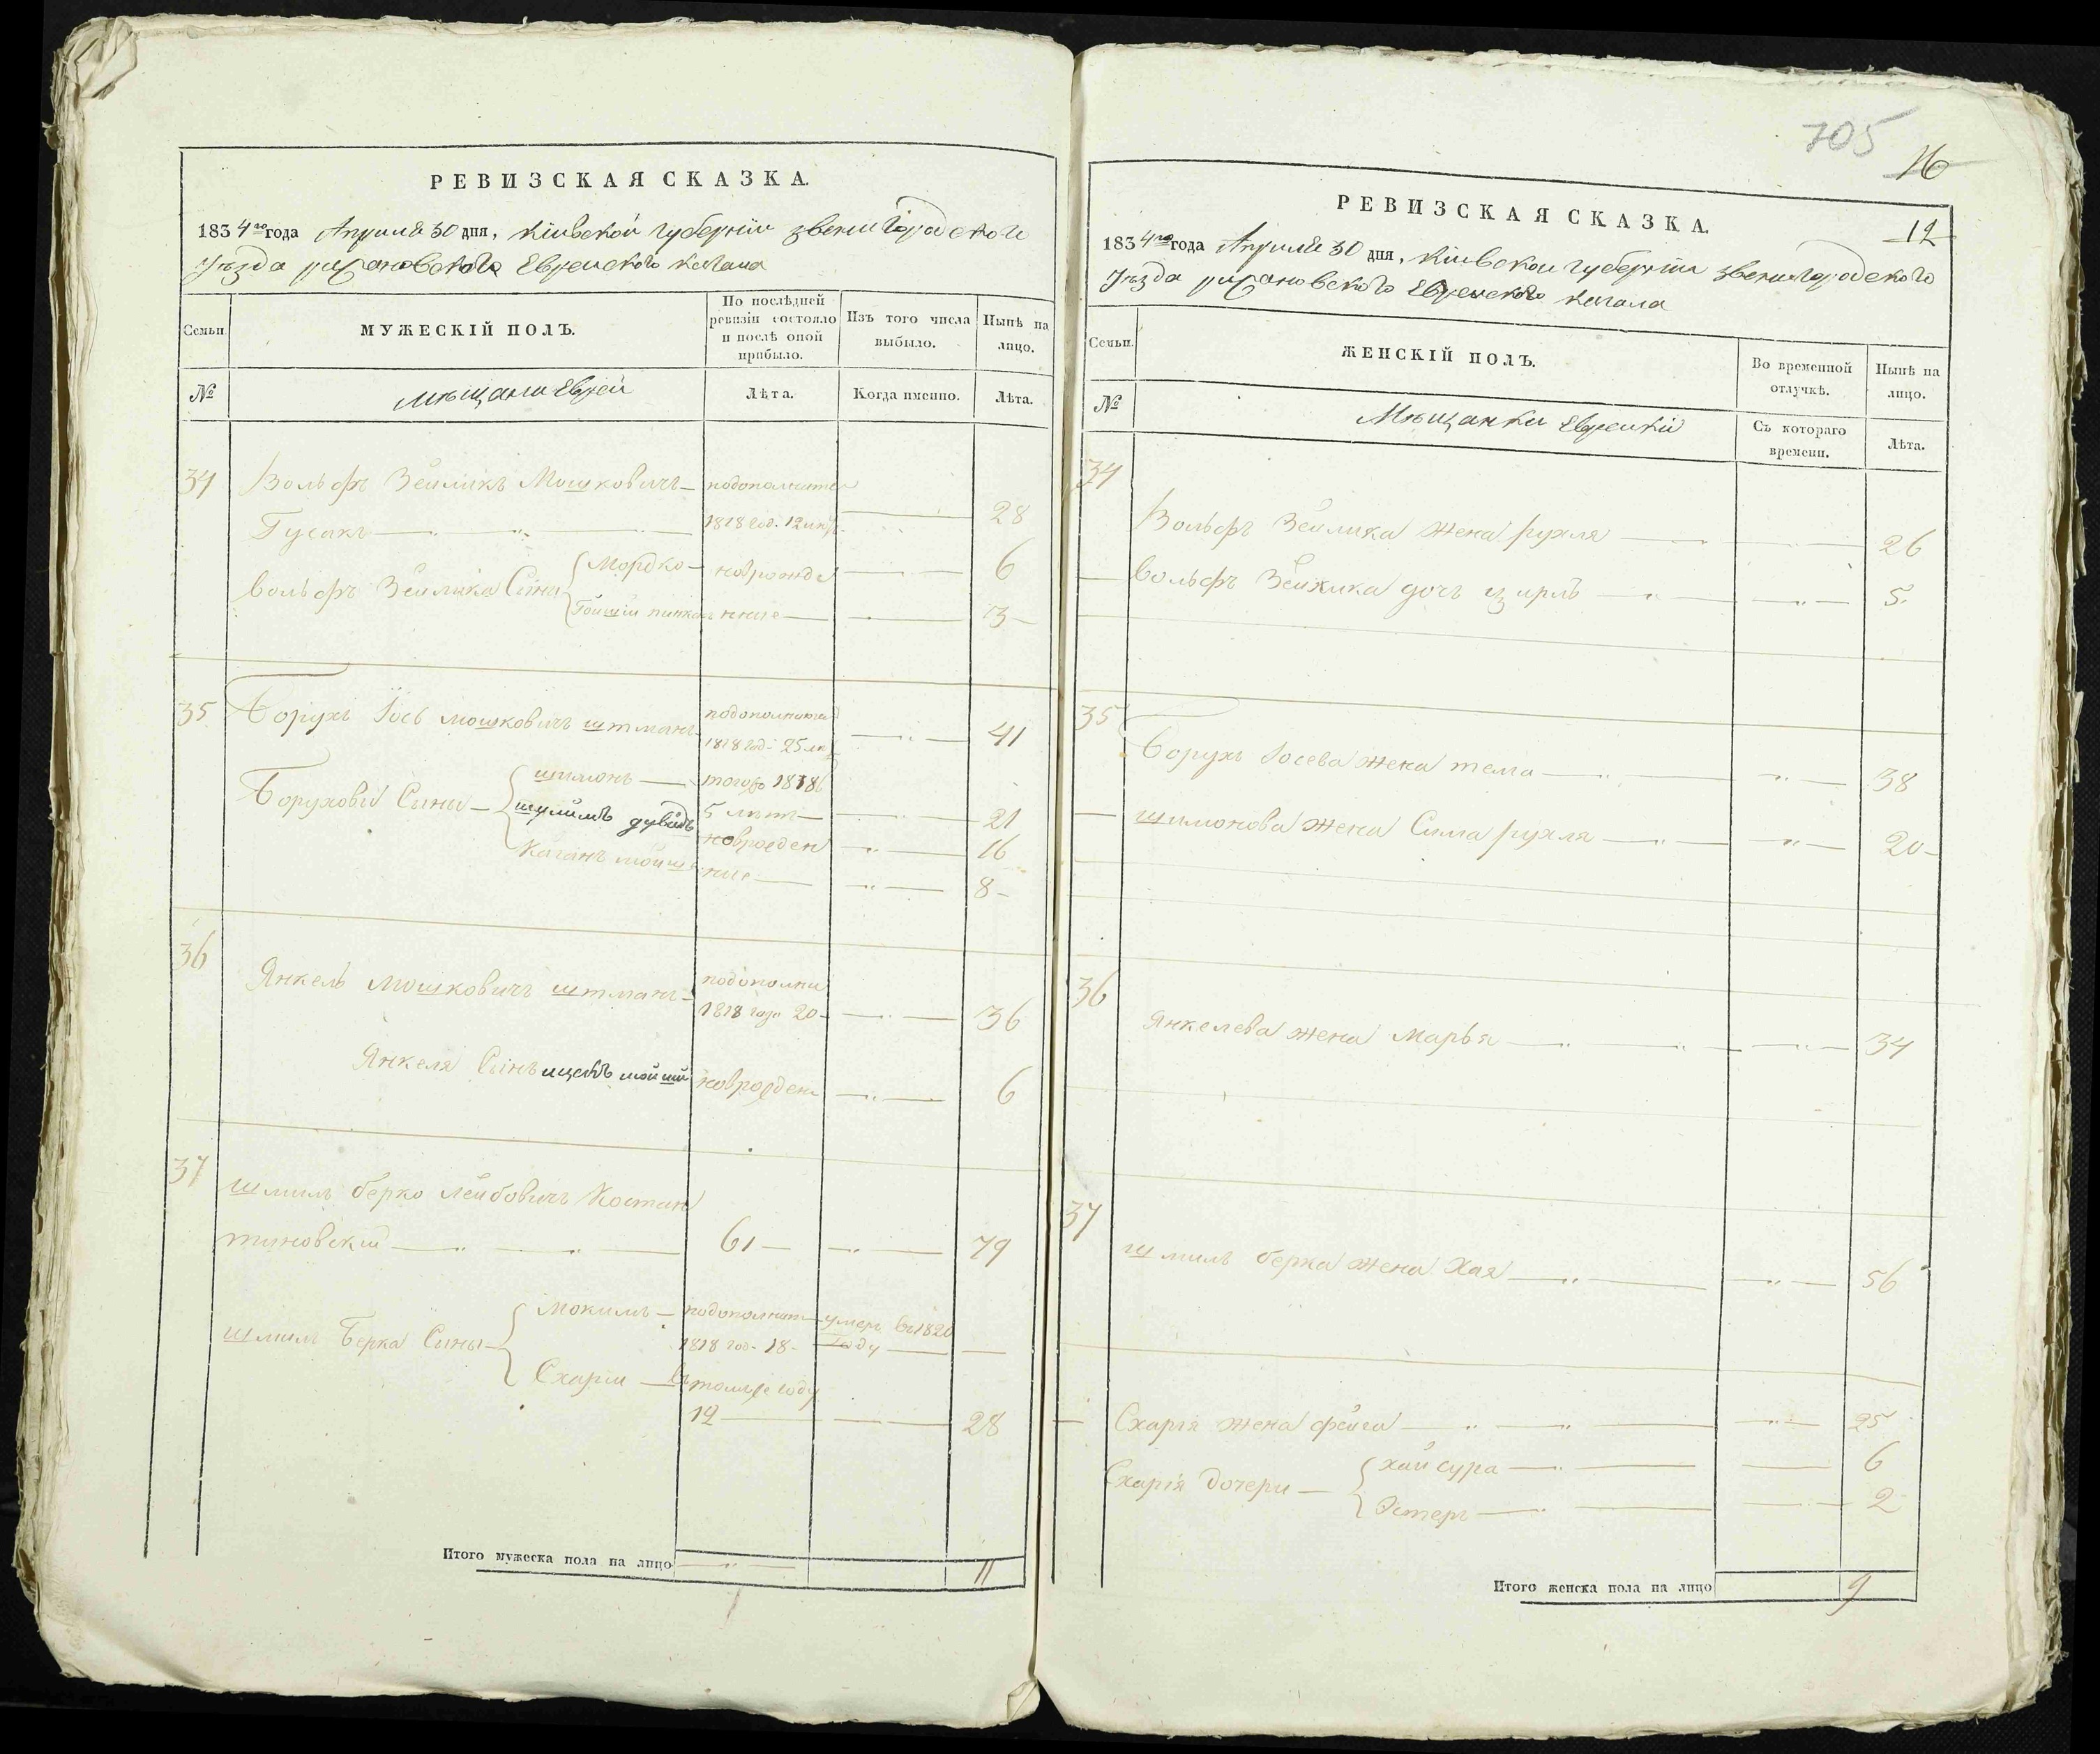 РЕВИЗСКАЯ СКАЗКА.
1834го года Апреля 30 дня, Кіевской губерніи звенигородского
Уѣзда рыжановского Еврейского кагала
Семьи.
МУЖЕСКІЙ ПОЛЪ.
По послѣдней ревизіи состояло и послѣ оной прибыло.
Изъ того числа выбыло.
Нынѣ на лицо.
№
мѣщане Евреи
Лѣта.
Когда именно.
Лѣта.
34 Вольфъ Зейликъ Мошковичъ — подополните
Гусакъ — 1818 год. 12 лѣтъ — 28
Вольфъ Зейлика Сыны Мордко — новорожде — 6
пинкас нные — 3
35 Борухъ Іось мошковичъ штманъ подополнител
1818 год. 25 лѣ — 41
Боруховы Сыны — шимонъ — тогожъ 1818
5 лѣтъ — 21
шулимъ дувидъ новорожден — 16
Каганъ мойше ные — 8
36 Янкель мошковичъ штманъ — подополни
1818 года 20 — 36
Янкеля Сынъ ицекъ мойше новорожден — 6
37 шмиль берко лейбовичъ Костан
тиновский — 61 — 79
шмиль Берка Сыны — Мокимъ — подополнит умеръ въ 1820
1818 год. 18 — Году —
Схария — Въ томже году
12 — 28
Итого мужеска пола на лицо 11
705
16
12
РЕВИЗСКАЯ СКАЗКА.
1834го года Апреля 30 дня, Кіевской губерніи звенигородского
Уѣзда рыжановского Еврейского кагала
Семьи.
ЖЕНСКІЙ ПОЛЪ.
Во временной отлучкѣ.
Нынѣ на лицо.
№
Мѣщанки Еврейкіи
Съ котораго времени.
Лѣта.
34
Вольфъ Зейлика жена рухля — 26
Вольфъ Зейлика дочь цирль — 5
35
Борухъ Іосева жена тема — 38
шимонова жена Сима рухля — 20
36
Янкелева жена Марья — 34
37
шмиль берка жена Хая — 56
Схарія жена фейга — 25
Схарія дочери — хай сура — 6
Эстеръ — 2
Итого женска пола на лицо 9